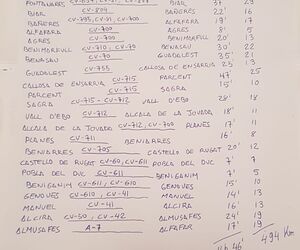 FONTANARES BIAR 37' 29
BIAR CV-804 BAÑERES 22' 16
BAÑERES ALFAFARA 19' 17
ALFAFARA CV-700 AGRES 8' 5
AGRES CV-700 BENIMORFULL 20' 13
BENIMORFULL CV-710, CV-70 BENASAU 30' 22
BENASAU CV-70 GUADALEST 35' 21
GUADALEST CV-755 CALLOSA DE ENSARRIA 25 13
CALLOSA DE ENSARRIA CV-715 PARCENT 47' 25
PARCENT CV-715 SAGRA 15' 10
SAGRA CV-715 - CV-712 VALL D'EBO 28' 18
VALL D'EBO CV-712 ALCALA DE LA JOVADA 18' 11
ALCALA DE LA JOVADA CV-712, CV-700 PLANES 17' 11
PLANES CV-711 BENIARRES 16' 8
BENIARRES CV-705 CASTELLO DE RUGAT 20' 12
CASTELLO DE RUGAT CV-60, CV-611 POBLA DEL DUC 7' 7
POBLA DEL DUC CV-611 BENIGANIM 7' 5
BENIGANIM CV-611, CV-610 GENOVES 15' 10
GENOVES CV-610, CV-41 MANUEL 14' 13
MANUEL CV-41 ALCIRA 16' 13
ALCIRA CV-50, CV-42 ALMUSAFES 24' 19
ALMUSAFES A-7 17' 19
46' 494 Km